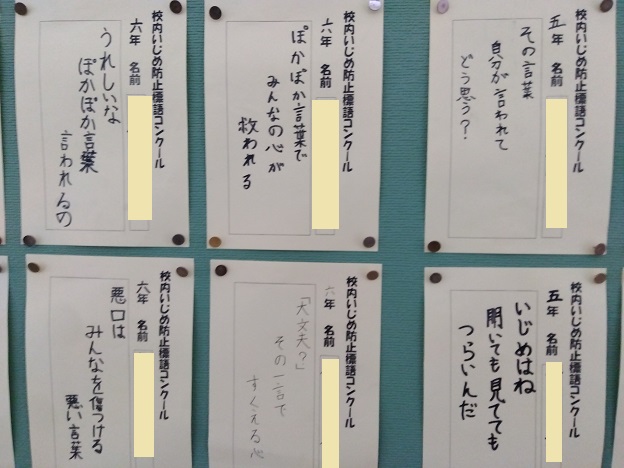 校内いじめ防止標語コンクール
五年 名前
その言葉
自分が言われて
どう思う?
校内いじめ防止標語コンクール
六年 名前
ぽかぽか言葉で
みんなの心が
救われる
校内いじめ防止標語コンクール
六年 名前
うれしいな
ぽかぽか言葉
言われるの
校内いじめ防止標語コンクール
五年 名前
いじめはね
聞いても見てても
つらいんだ
校内いじめ防止標語コンクール
六年 名前
「大丈夫?」
その一言で
すくえる心
校内いじめ防止標語コンクール
六年 名前
悪口は
みんなを傷つける
悪い言葉